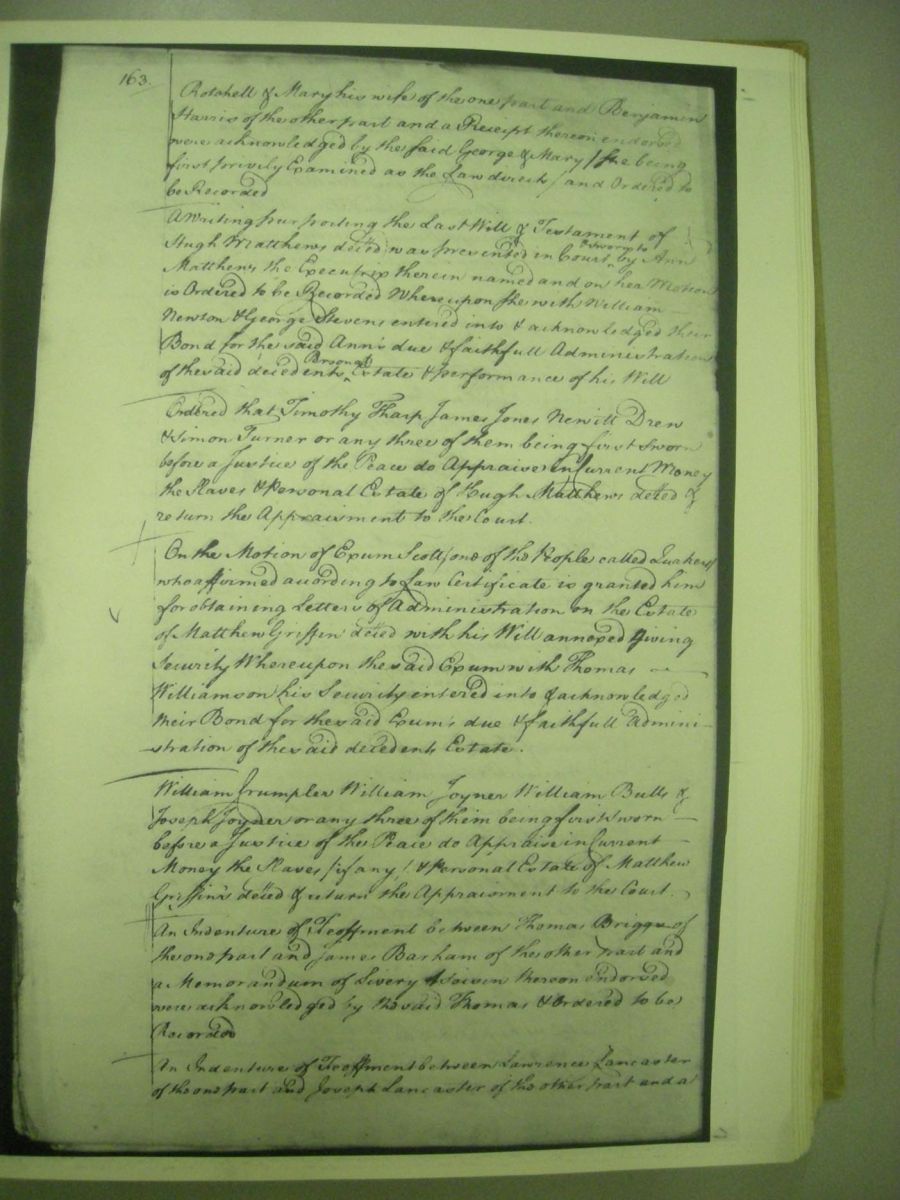 163.
Rotchell & Mary his wife of the one part and Benjamin
Harris of the other part and a Receipt thereon endorsed
were acknowledged by the said George & Mary /she being
first privily Examined as the Law directs/ and Ordered to
be Recorded
A Writing purporting the Last Will & Testament of
Hugh Matthews deced was presented in Court & sworn to by Ann
Matthews the Executrix therein named and on her Motion
is Ordered to be Recorded Whereupon she with William
Newton & George Stevens entered into & acknowledged their
Bond for the said Ann's due & faithfull Administration
of the said decedents Personal Estate & performance of his Will
Ordered that Timothy Tharp James Jones Newitt Drew
& Simon Turner or any three of them being first sworn
before a Justice of the Peace do Appraise in Current Money
the Slaves & Personal Estate of Hugh Matthews deced &
return the Appraisment to the Court.
On the Motion of Exum Scott/one of the People called Quakers/
who affirmed according to Law Certificate is granted him
for obtaining Letters of Administration on the Estate
of Matthew Griffin deced with his Will annexed giving
Security Whereupon the said Exum with Thomas
Williamson his Security entered into & acknowledged
their Bond for the said Exum's due & faithfull Admini-
stration of the said decedents Estate.
William Crumpler William Joyner William Bulls &
Joseph Joyner or any three of them being first sworn
before a Justice of the Peace do Appraise in Current
Money the Slaves /if any/ & Personal Estate of Matthew
Griffin's deced & return the Appraisment to the Court.
An Indenture of Feoffment between Thomas Briggs of
the one part and James Barham of the other part and
a Memorandum of Livery & Seisin thereon endorsed
were acknowledged by the said Thomas & Ordered to be
Recorded
An Indenture of Feoffment between Lawrence Lancaster
of the one part and Joseph Lancaster of the other part and a